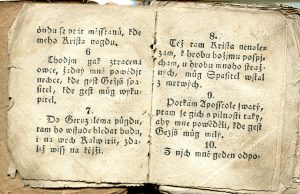 ondu se ptitměsstanů, kde
meho Krista nagdu.
6
Chodjm gak ztracená
owce, žádný mně powědjt
nechce, kde gest Gežjš Spa-
sytel, kde gest můg wyku-
pitel.
7.
Do Geruzaléma půgdu,
tam ho wssude hledat budu,
i na wrch Kalwarii, zda-
liž wisý na křjži.
8.
Též tam Krista nenalez-
am, k hrobu božjmu pospj-
chám, u hrobu mnoho stráž-
ných, můg Spasitel wstal
z mrtwých.
9.
Potkám Aposstole swatý,
ptám se gich s pilnosti taky,
aby mně poweděli, kde gest
Gežjš můg milý.
10.
Z nich mně geden odpo-